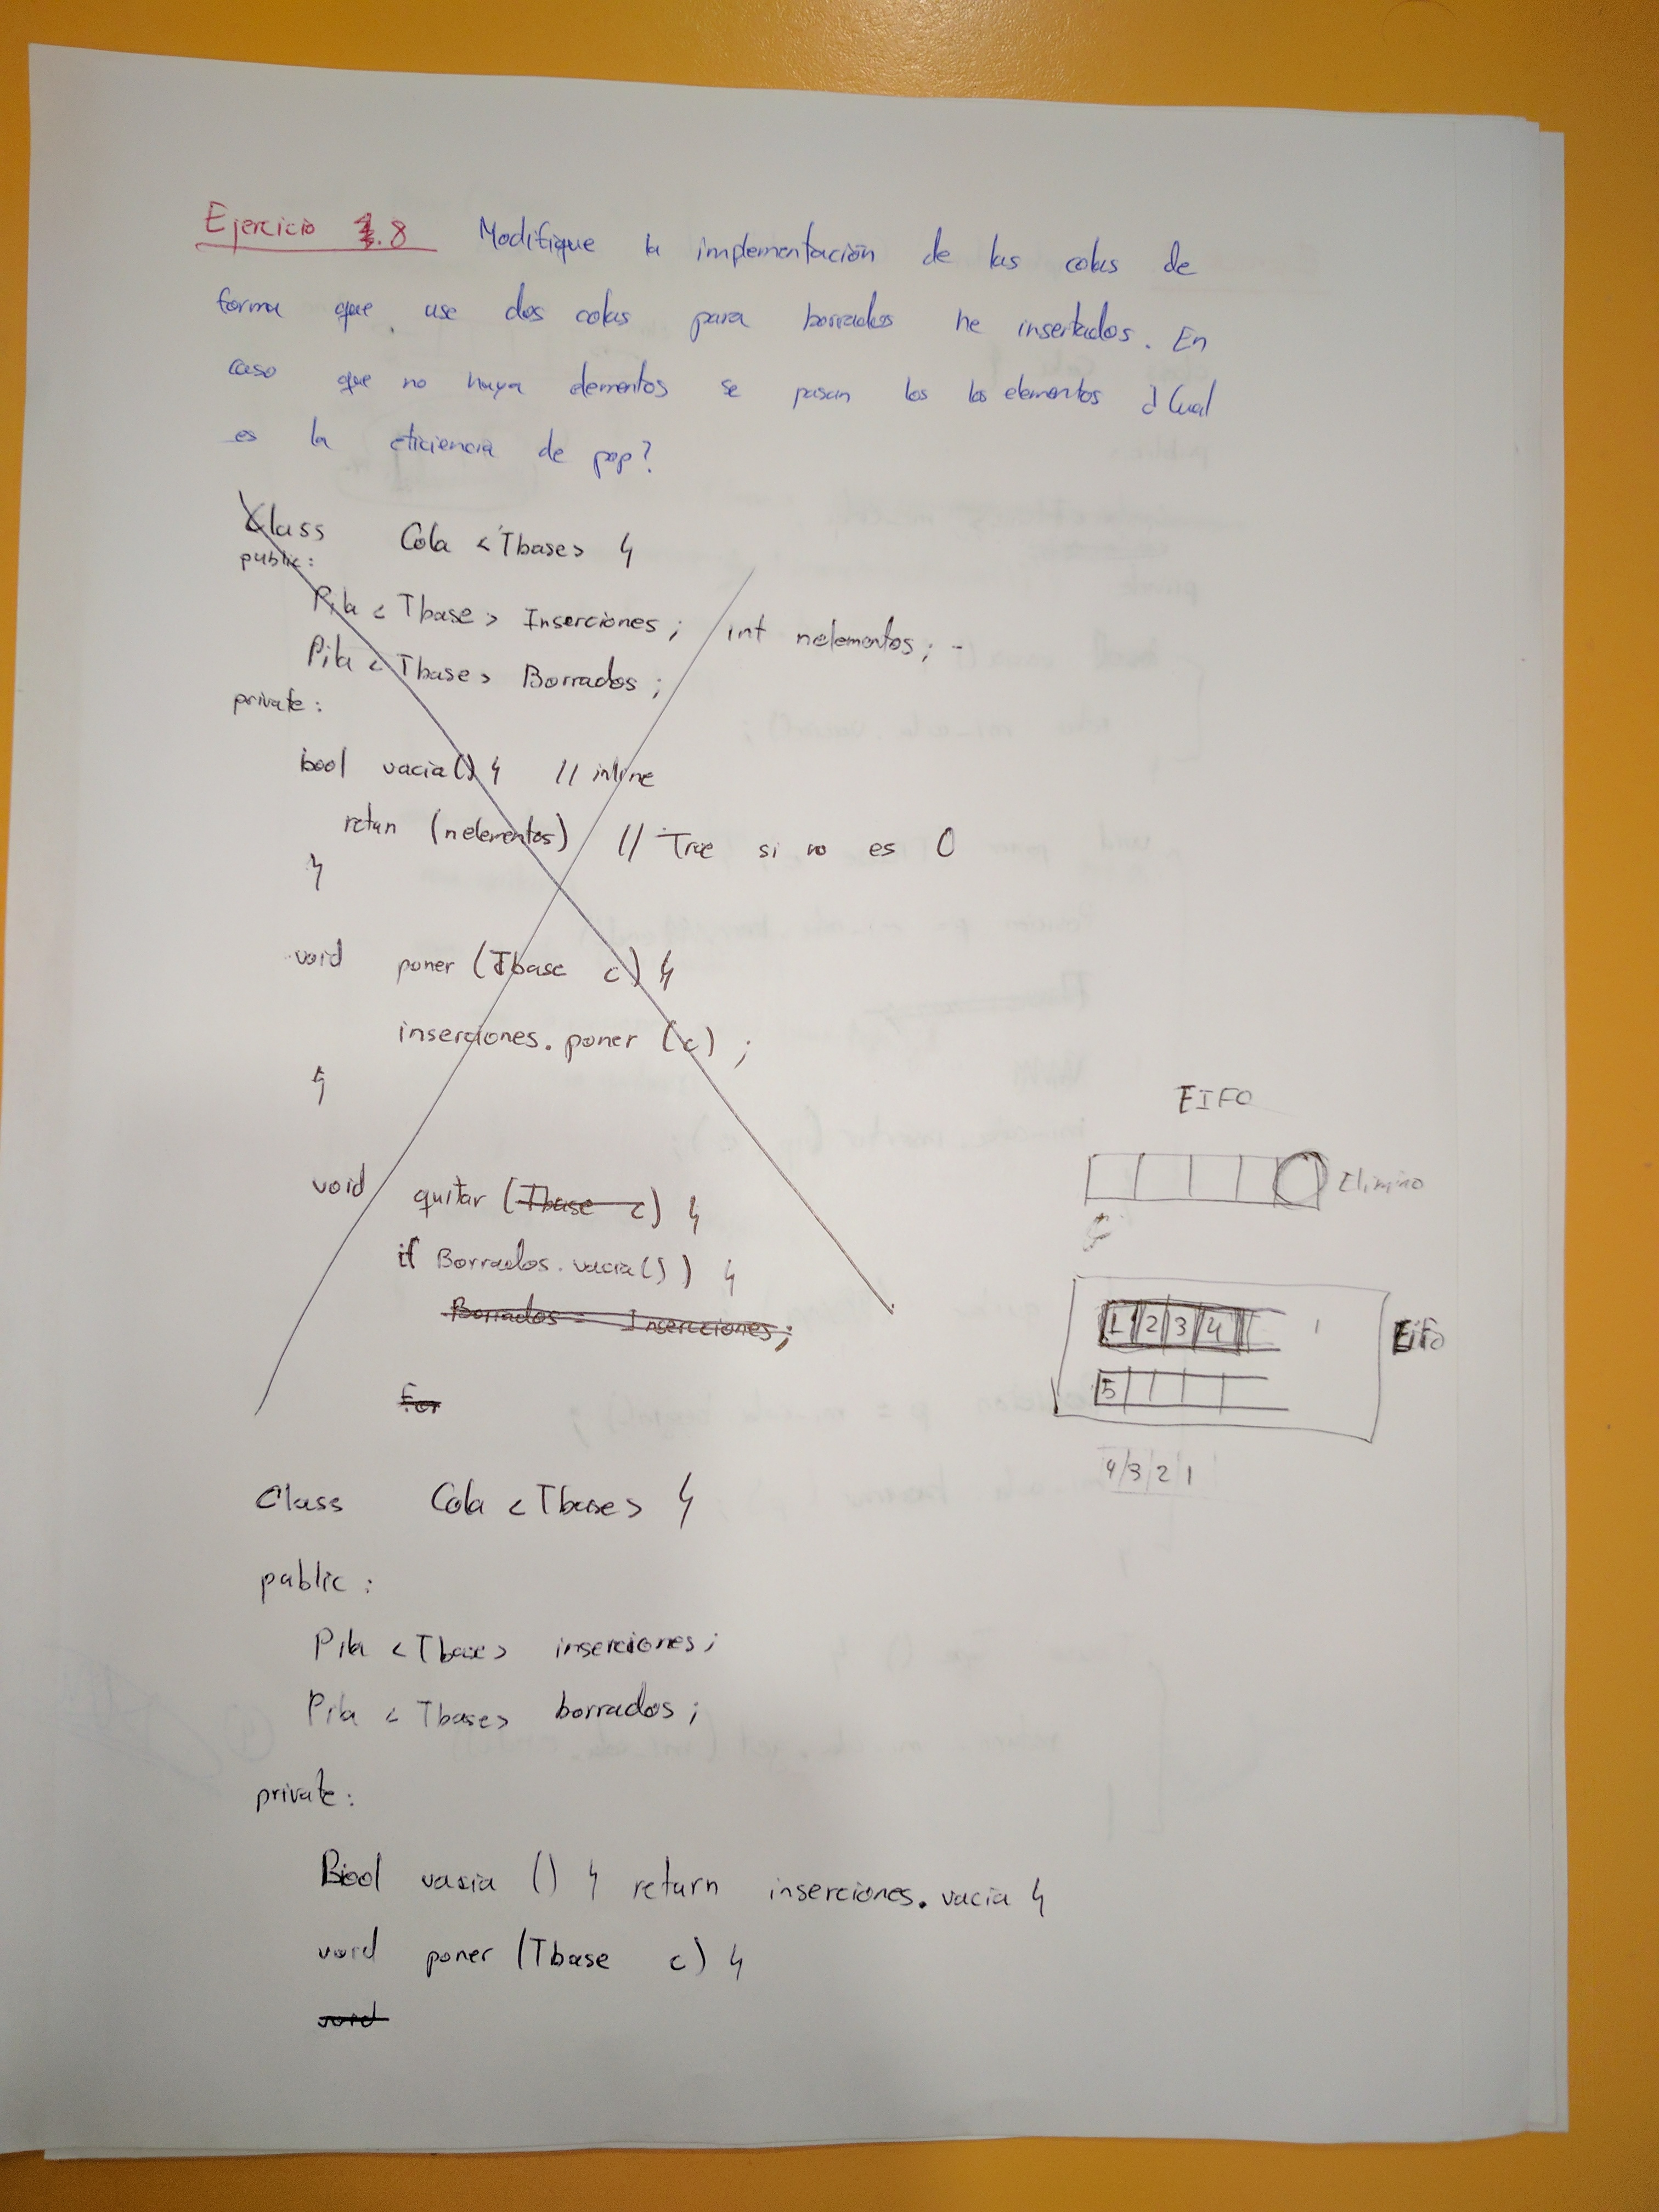 Ejercicio 1.8 Modifique la implementación de las colas de
forma que use dos colas para borrados he insertados. En
caso que no haya elementos se pasan los los elementos ¿Cual
es la eficiencia de pop?
Class Cola <Tbase> {
public:
Pila <Tbase> Inserciones; int nelementos; -
Pila <Tbase> Borrados;
private:
bool vacia() { // inline
retun (nelementos) // True si no es 0
}
void poner (Tbase c) {
inserciones.poner (c);
}
void quitar (Tbase c) {
if Borrados.vacia()) {
Borrados = Inserciones;
For
EIFO
Elimino
1 2 3 4
5
EiFo
4 3 2 1
Class Cola <Tbase> {
public:
Pila <Tbase> inserciones;
Pila <Tbase> borrados;
private:
Bool vacia () { return inserciones.vacia }
void poner (Tbase c) {
void